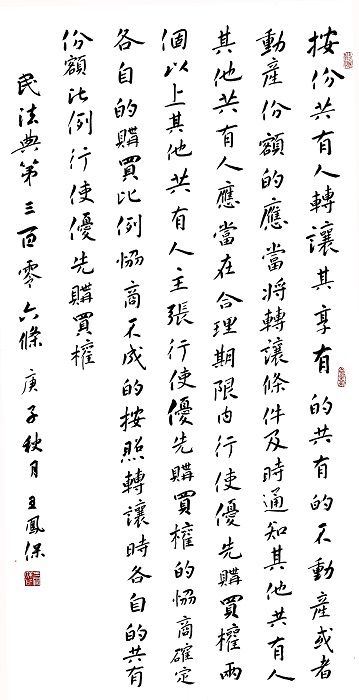 按份共有人轉讓其享有的共有的不動産或者
動産份額的應當將轉讓條件及時通知其他共有人
其他共有人應當在合理期限内行使優先購買權兩
個以上其他共有人主張行使優先購買權的協商確定
各自的購買比例協商不成的按照轉讓時各自的共有
份額比例行使優先購買權
民法典第三百零六條 庚子秋月 王鳳保